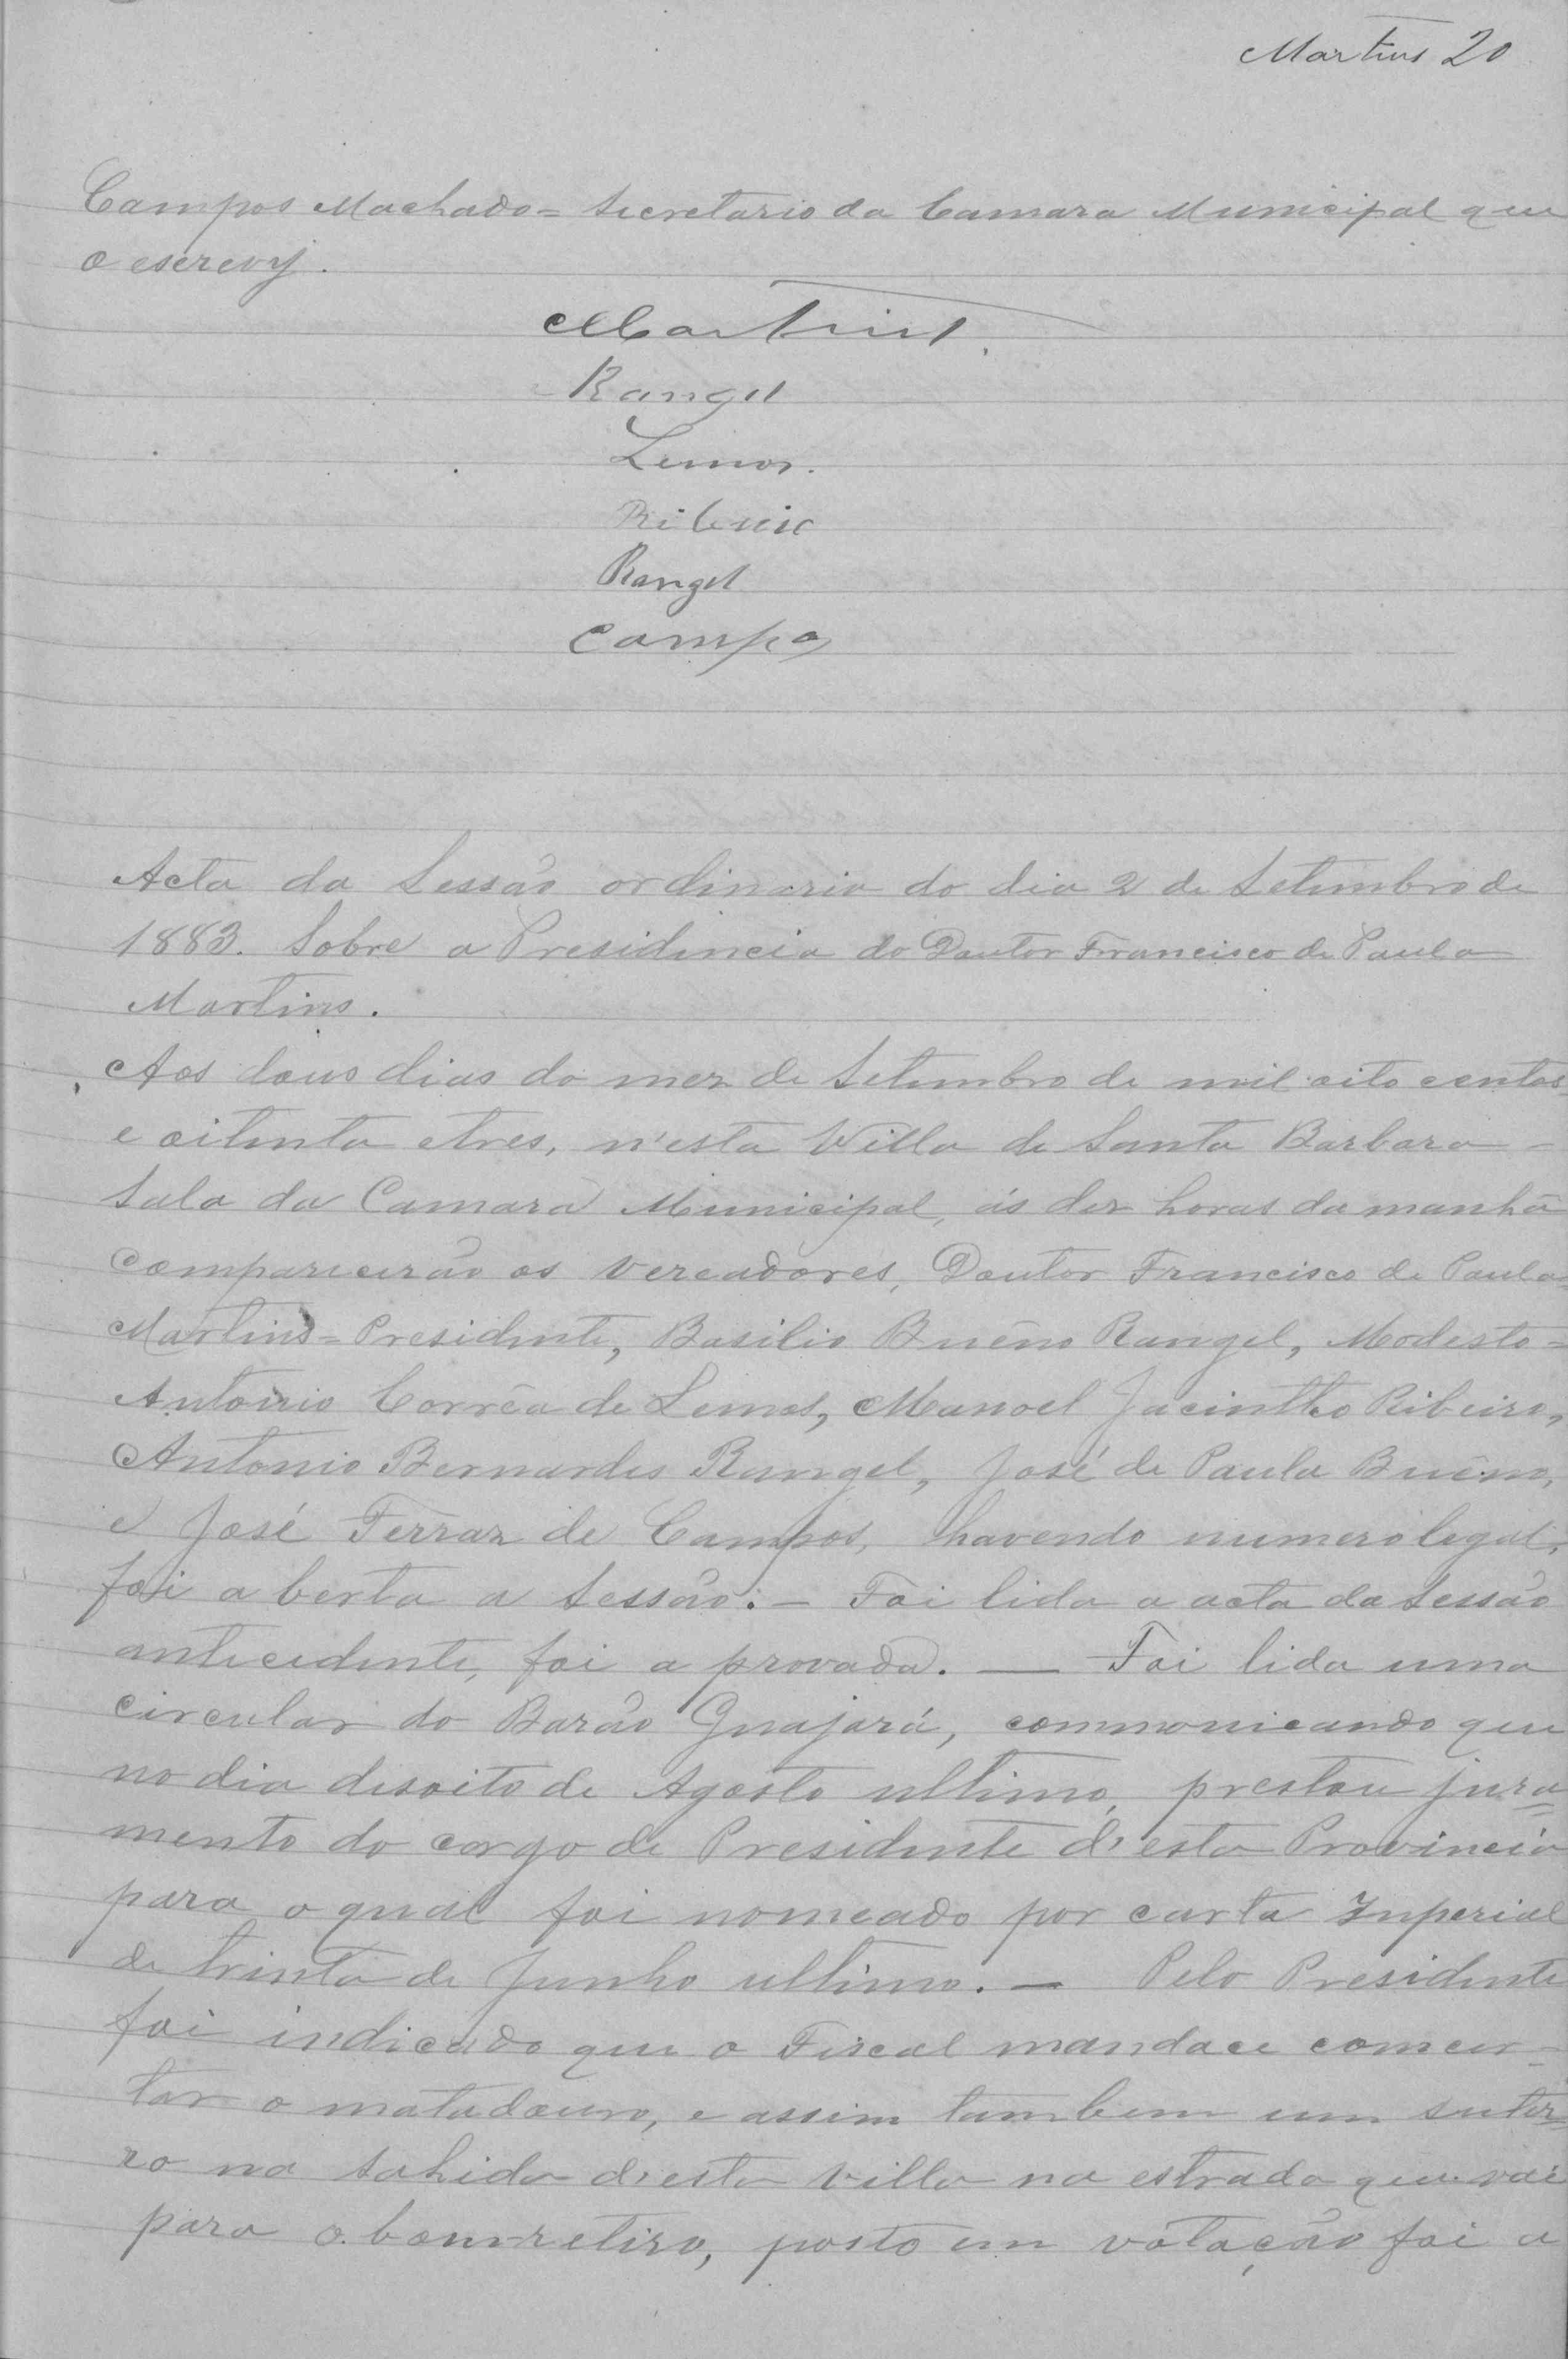 Martins 20
Campos Machado = Secretario da Camara Municipal que
o escrevy.
Martins.
Rangel
Lemos.
Ribeiro
Rangel
Campos
Acta da Sessão ordinaria do dia 2 de Setembro de
1883. Sobre a Presidencia do Doutor Francisco de Paula
Martins.
Aos dous dias do mez de Setembro de mil oito centos
e oitenta etres, n'esta Villa de Santa Barbara -
Sala da Camara Municipal, ás dez horas da manhã
comparecerão os vereadores, Doutor Francisco de Paula
Martins = Presidente, Basilio Buêno Rangel, Modesto =
Antonio Corrêa de Lemos, Manoel Jacintho Ribeiro,
Antonio Bernardes Rangel, José de Paula Buêno,
e José Ferraz de Campos, havendo numero legal,
foi a berta a Sessão: - Foi lida a acta da Sessão
antecedente, foi a provada. — Foi lida uma
circular do Barão Guajará, commonicando que
no dia desoito de Agosto ultimo, prestou jura=
mento do cargo de Presidente d'esta Provincia
para o qual foi nomeado por carta Inperial
de trinta de Junho ultimo. — Pelo Presidente
foi indicado que o Fiscal mandace comcer=
tar o matadouro, e assim tambem um
ro na sahida d'esta Villa na estrada que vai
para o bom-retiro, posto em votação foi a